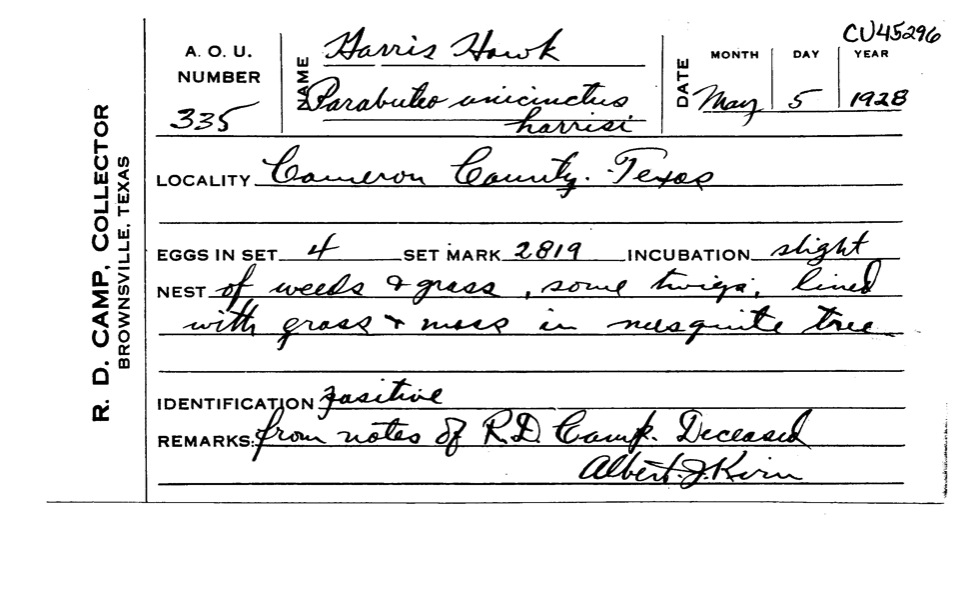 CU45296
A. O. U. NUMBER 335
NAME Harris Hawk
Parabuteo unicinctus
harrisi
DATE MONTH May DAY 5 YEAR 1928
R. D. CAMP, COLLECTOR
BROWNSVILLE, TEXAS
LOCALITY Cameron County. Texas
EGGS IN SET 4 SET MARK 2819 INCUBATION slight
NEST of weeds & grass, some twigs, lined
with grass & moss in mesquite tree
IDENTIFICATION positive
REMARKS: from notes of R.D. Camp. Deceased
Albert J. Kirn